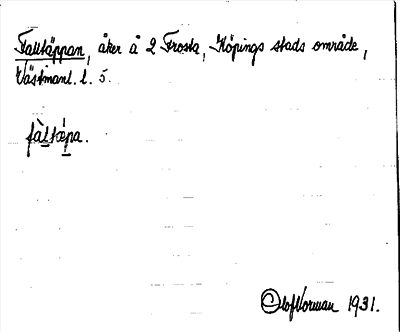 Falltäppan, åker å 2 Frosta, Köpings stads område,
Västmanl. l. 5.
fàltǽpa.
Olof Norman 1931.